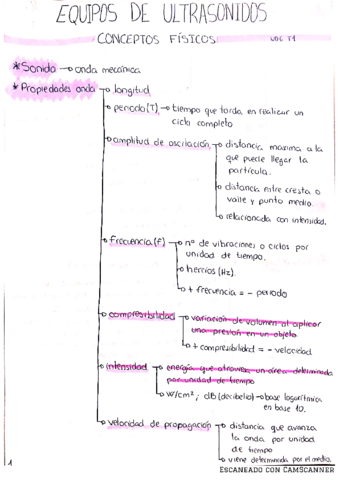 EQUIPOS DE ULTRASONIDOS
CONCEPTOS FÍSICOS
UDC T1
* Sonido → onda mecánica
* Propiedades onda → longitud
→ periodo (T) → tiempo que tarda en realizar un
ciclo completo
→ amplitud de oscilación → distancia maxima a la
que puede llegar la
partícula.
→ distancia entre cresta o
valle y punto medio.
→ relacionada con intensidad.
→ frecuencia (f) → nº de vibraciones o ciclos por
unidad de tiempo.
→ hercios (Hz).
→ + frecuencia = - periodo
→ compresibilidad → variación de volumen al aplicar
una presión en un objeto
→ + compresibilidad = - velocidad
→ intensidad → energía que atraviesa un área determinada
por unidad de tiempo
→ W/cm²; dB (decibelio) → base logarítmica
en base 10.
→ velocidad de propagación → distancia que avanza
la onda por unidad
de tiempo
→ viene determinada por el medio.
1
ESCANEADO CON CAMSCANNER